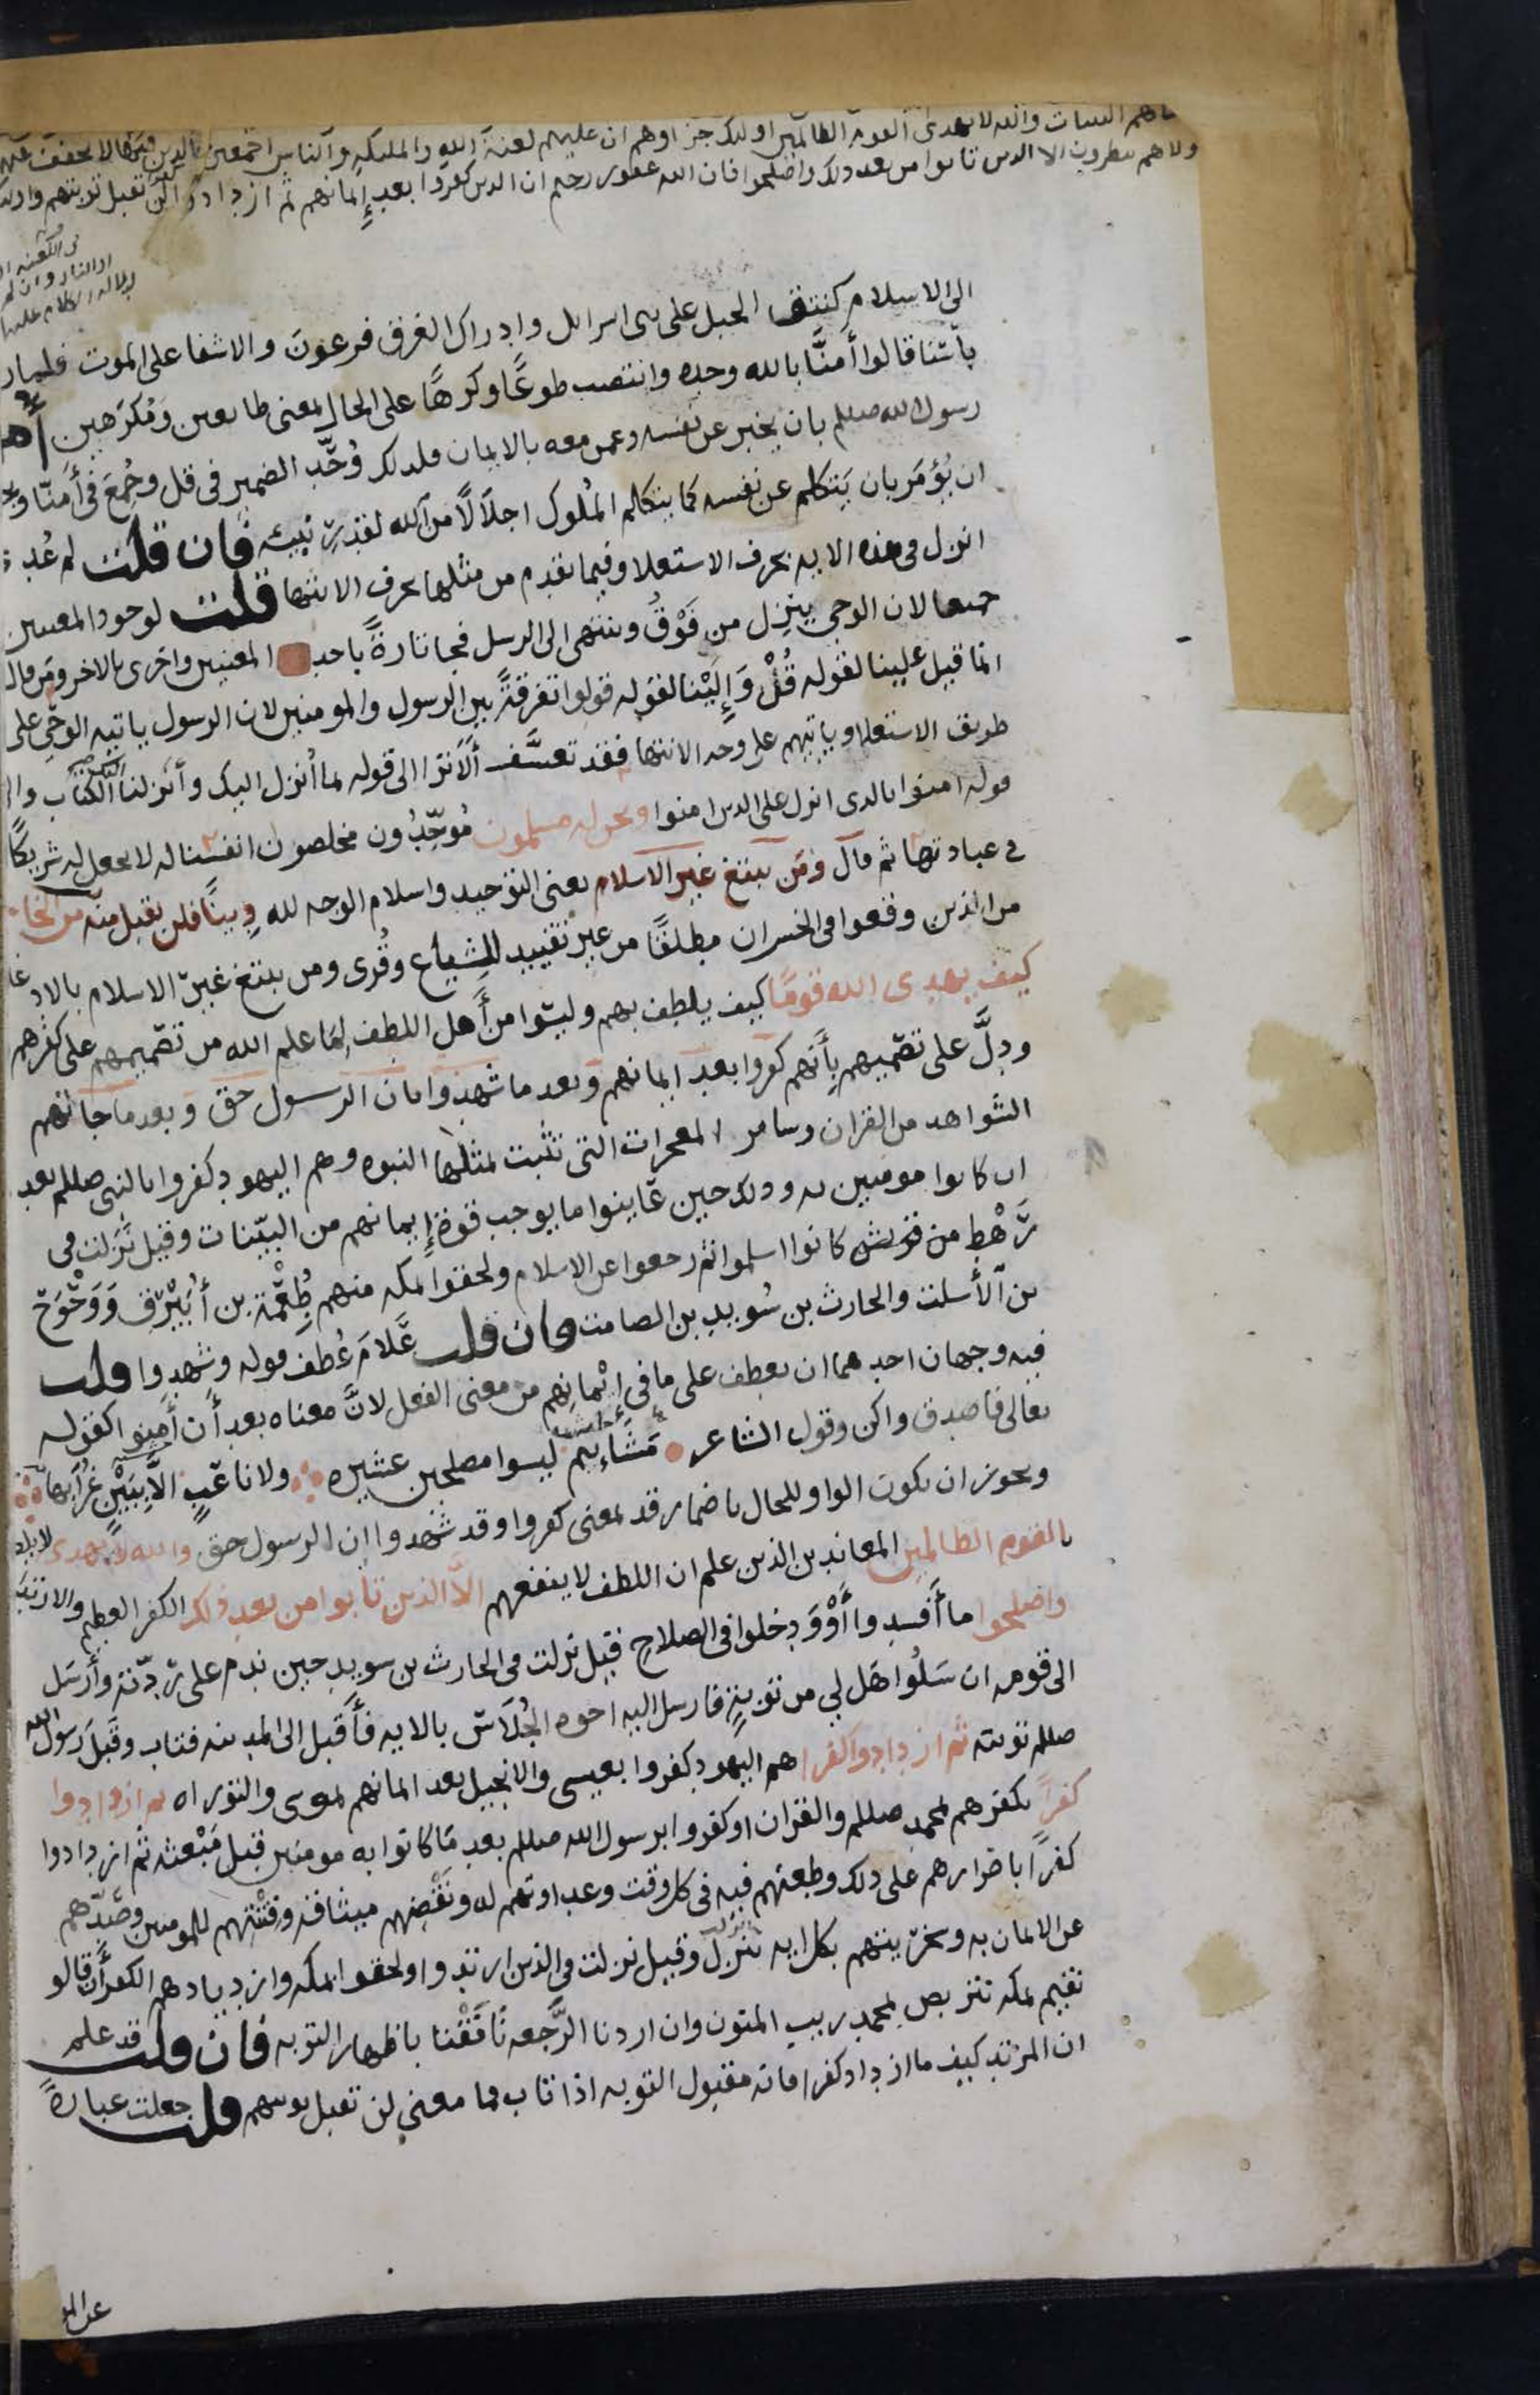 البينات والله لا يهدى القوم الظالمين اولئك جزاوهم ان عليهم لعنة الله والمليكه والناس اجمعين خالدين فيها لا يخفف عنهم
ولا هم ينظرون الا الذين تابوا من بعد ذلك واصلحوا فان الله غفور رحيم ان الذين كفروا بعد إيمانهم ثم ازدادوا لن تقبل توبتهم واولئك
الى الاسلام كنتق الجبل على بنى اسرايل وادراك الغرق فرعون والاشفا على الموت فلما را
بأسنا قالوا أمنّا بالله وحده وانتصب طوعًا وكرهًا على الحال بمعنى طايعين ومُكرَهين
رسول الله صللم بان يخبر عن نفسه وعمن معه بالايمان فلذلك وُحّد الضمير فى قل وجُمع فى أمنّا
ان يُؤمَر بان يَتكلم عن نفسه كما يتكلم الملوك اجلالًا من الله لقدر نبيه فان قلت لم عُدى
انزل فى هذه الايه بحرف الاستعلا وفيما تقدم من مثلها بحرف الانتها قلت لوجود المعنيين
جميعا لان الوحي ينزل من فَوْقُ وينتهى الى الرسل فجا تارةً باحد المعنيين واخرى بالاخر ومن قال
انما قيل علينا لقوله قُلْ وَإِلَيْنا لقوله قولوا تفرقةً بين الرسول والمومنين لان الرسول ياتيه الوحي على
طريق الاستعلا وياتيهم على وجه الانتها فقد تعسَّف ألا ترا الى قوله بما أنزل اليك وأنزلنا اليك الكتاب وا
قوله امنوا بالذى انزل على الذين امنوا ونحن له مسلمون مُوحّدُون مخلصون انفسنا له لا نجعل له شريكًا
فى عبادتها ثم قال ومَن يبتغ غير الاسلام يعنى التوحيد واسلام الوجه لله دينًا فلن يقبل منه من الخا
من الذين وقعوا فى الخسران مطلقًا من غير تقييد للشياع وقُرى ومن يبتغ غير الاسلام بالادغا
كيف يهدى الله قومًا كيف يلطف بهم وليسوا من أهل اللطف لِمَا علم الله من تصميمهم على كفرهم
ودلَّ على تصميمهم بأنهم كفروا بعد ايمانهم وبعد ما شهدوا بان الرسول حق وبعد ما جاتهم
الشواهد من القران وساير المعجزات التى تثبت بمثلها النبوه وهم اليهود كفروا بالنبى صللم بعد
ان كانوا مومنين به وذلك حين عَاينوا ما يوجب قوة إيمانهم من البيّنات وقيل نزلت فى
رَهْط من قريش كانوا اسلموا ثم رجعوا عن الاسلام ولحقوا بمكه منهم طُعْمة بن أُبَيْرِق وَوَحْوَح
بن الأسلت والحارث بن سُويد بن الصامت فان قلت عَلامَ عُطف قوله وشهدوا قلت
فيه وجهان احدهما ان يعطف على ما فى إيمانهم من معنى الفعل لانَّ معناه بعد أن أمنوا كقوله
تعالى فاصدق واكن وقول الشاعر مَشَاءِيم ليسوا مصلحين عشيره ولا ناعبٍ الا بِبَيْن غُرابها
ويجوز ان يكون الواو للحال باضمار قد بمعنى كفروا وقد شهدوا ان الرسول حق والله لا يهدى
القوم الظالمين المعاندين الذين علم ان اللطف لا ينفعهم الا الذين تابوا من بعد ذلك الكفر العظيم والارتد
واصلحوا ما أفسدوا أَوْ وَدخلوا فى الصلاح قيل نزلت فى الحارث بن سويد حين ندم على رِدّته وأرسل
الى قومه ان سَلُوا هَل لي من توبةٍ فارسل اليه اخوه الجُلَاس بالايه فأقبل الى المدينه فتاب وقَبل رسول الله
صللم توبته ثم ازدادوا كفرا هم اليهود كفروا بعيسى والانجيل بعد ايمانهم بموسى والتوراه ثم ازدادوا
كفرًا بكفرهم بمحمد صللم والقران او كفروا برسول الله صللم بعد مَا كانوا به مومنين قبل مَبْعثه ثم ازدادوا
كفرًا باصرارهم على ذلك وطعنهم فيه فى كل وقت وعداوتهم له ونَقْضِهم ميثاقه وفتْنتهم للمومنين وصَدّهم
عن الايمان به وسخريتهم بكل ايه تنزل وقيل نزلت فى الذين ارتدوا ولحقوا بمكه وازديادهم الكفر أن قالو
نقيم بمكه نتربص بمحمد ريب المنون وان اردنا الرَّجعه نَافَقْنا باظهار التوبه فان قلت قد علم
ان المرتد كيف ما ازداد كفرا فانه مقبول التوبه اذا تاب فما معنى لن تقبل توبتهم قلت جعلت عبارةً